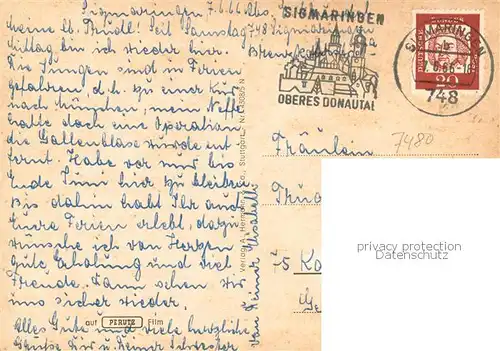 Sigmaringen, 7.6.66
Meine lb. Trudl! Seit Samstag
748 Sigmaringen
Mittag bin ich wieder hier.
Die Jungen sind in Ferien
gefahren, d.h. zu einer Kur
nach München, mein Neffe
hatte doch eine Operation
die Gallenblase wurde ent-
fernt. Habe vor nur bis
Ende Juni hier zu bleiben
bis dahin habt Ihr auch
Eure Ferien erlebt, dazu
wünsche ich von Herzen
gute Erholung und viel
Freude. Dann sehen wir
uns sicher wieder.
Alles Gute und viele herzliche
Grüsse Dir u. Deiner Schwester
von Deiner
auf PERUTZ Film
Verlag A. Co., Stuttgart,
SIGMARINGEN
OBERES DONAUTAL
SIGMARINGEN
748
20
7480
Fräulein
privacy protection
privacy protection